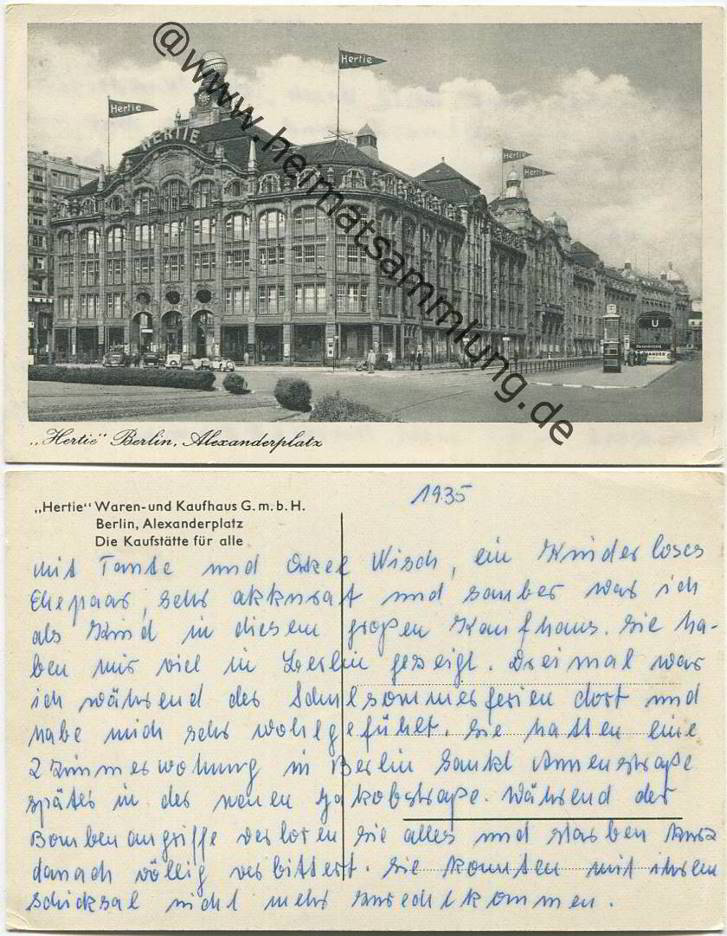 Hertie
Hertie
HERTIE
Hertie
Hertie
U
@www.heimatsammlung.de
„Hertie“ Berlin, Alexanderplatz
„Hertie“ Waren- und Kaufhaus G.m.b.H.
Berlin, Alexanderplatz
Die Kaufstätte für alle
1935
mit Tante und Onkel Wisch, ein Kinderloses
Ehepaar, sehr akkurat und sauber war ich
als Kind in diesem großen Kaufhaus. Sie ha-
ben mir viel in Berlin gezeigt. Dreimal war
ich während der Schulsommerferien dort und
habe mich sehr wohlgefühlt. Sie hatten eine
2 Zimmerwohnung in Berlin Sankt Annenstraße
später in der neuen Jakobstraße. Während der
Bombenangriffe verloren sie alles und starben kurz
danach völlig verbittert. Sie konnten mit ihrem
Schicksal nicht mehr zurechtkommen.